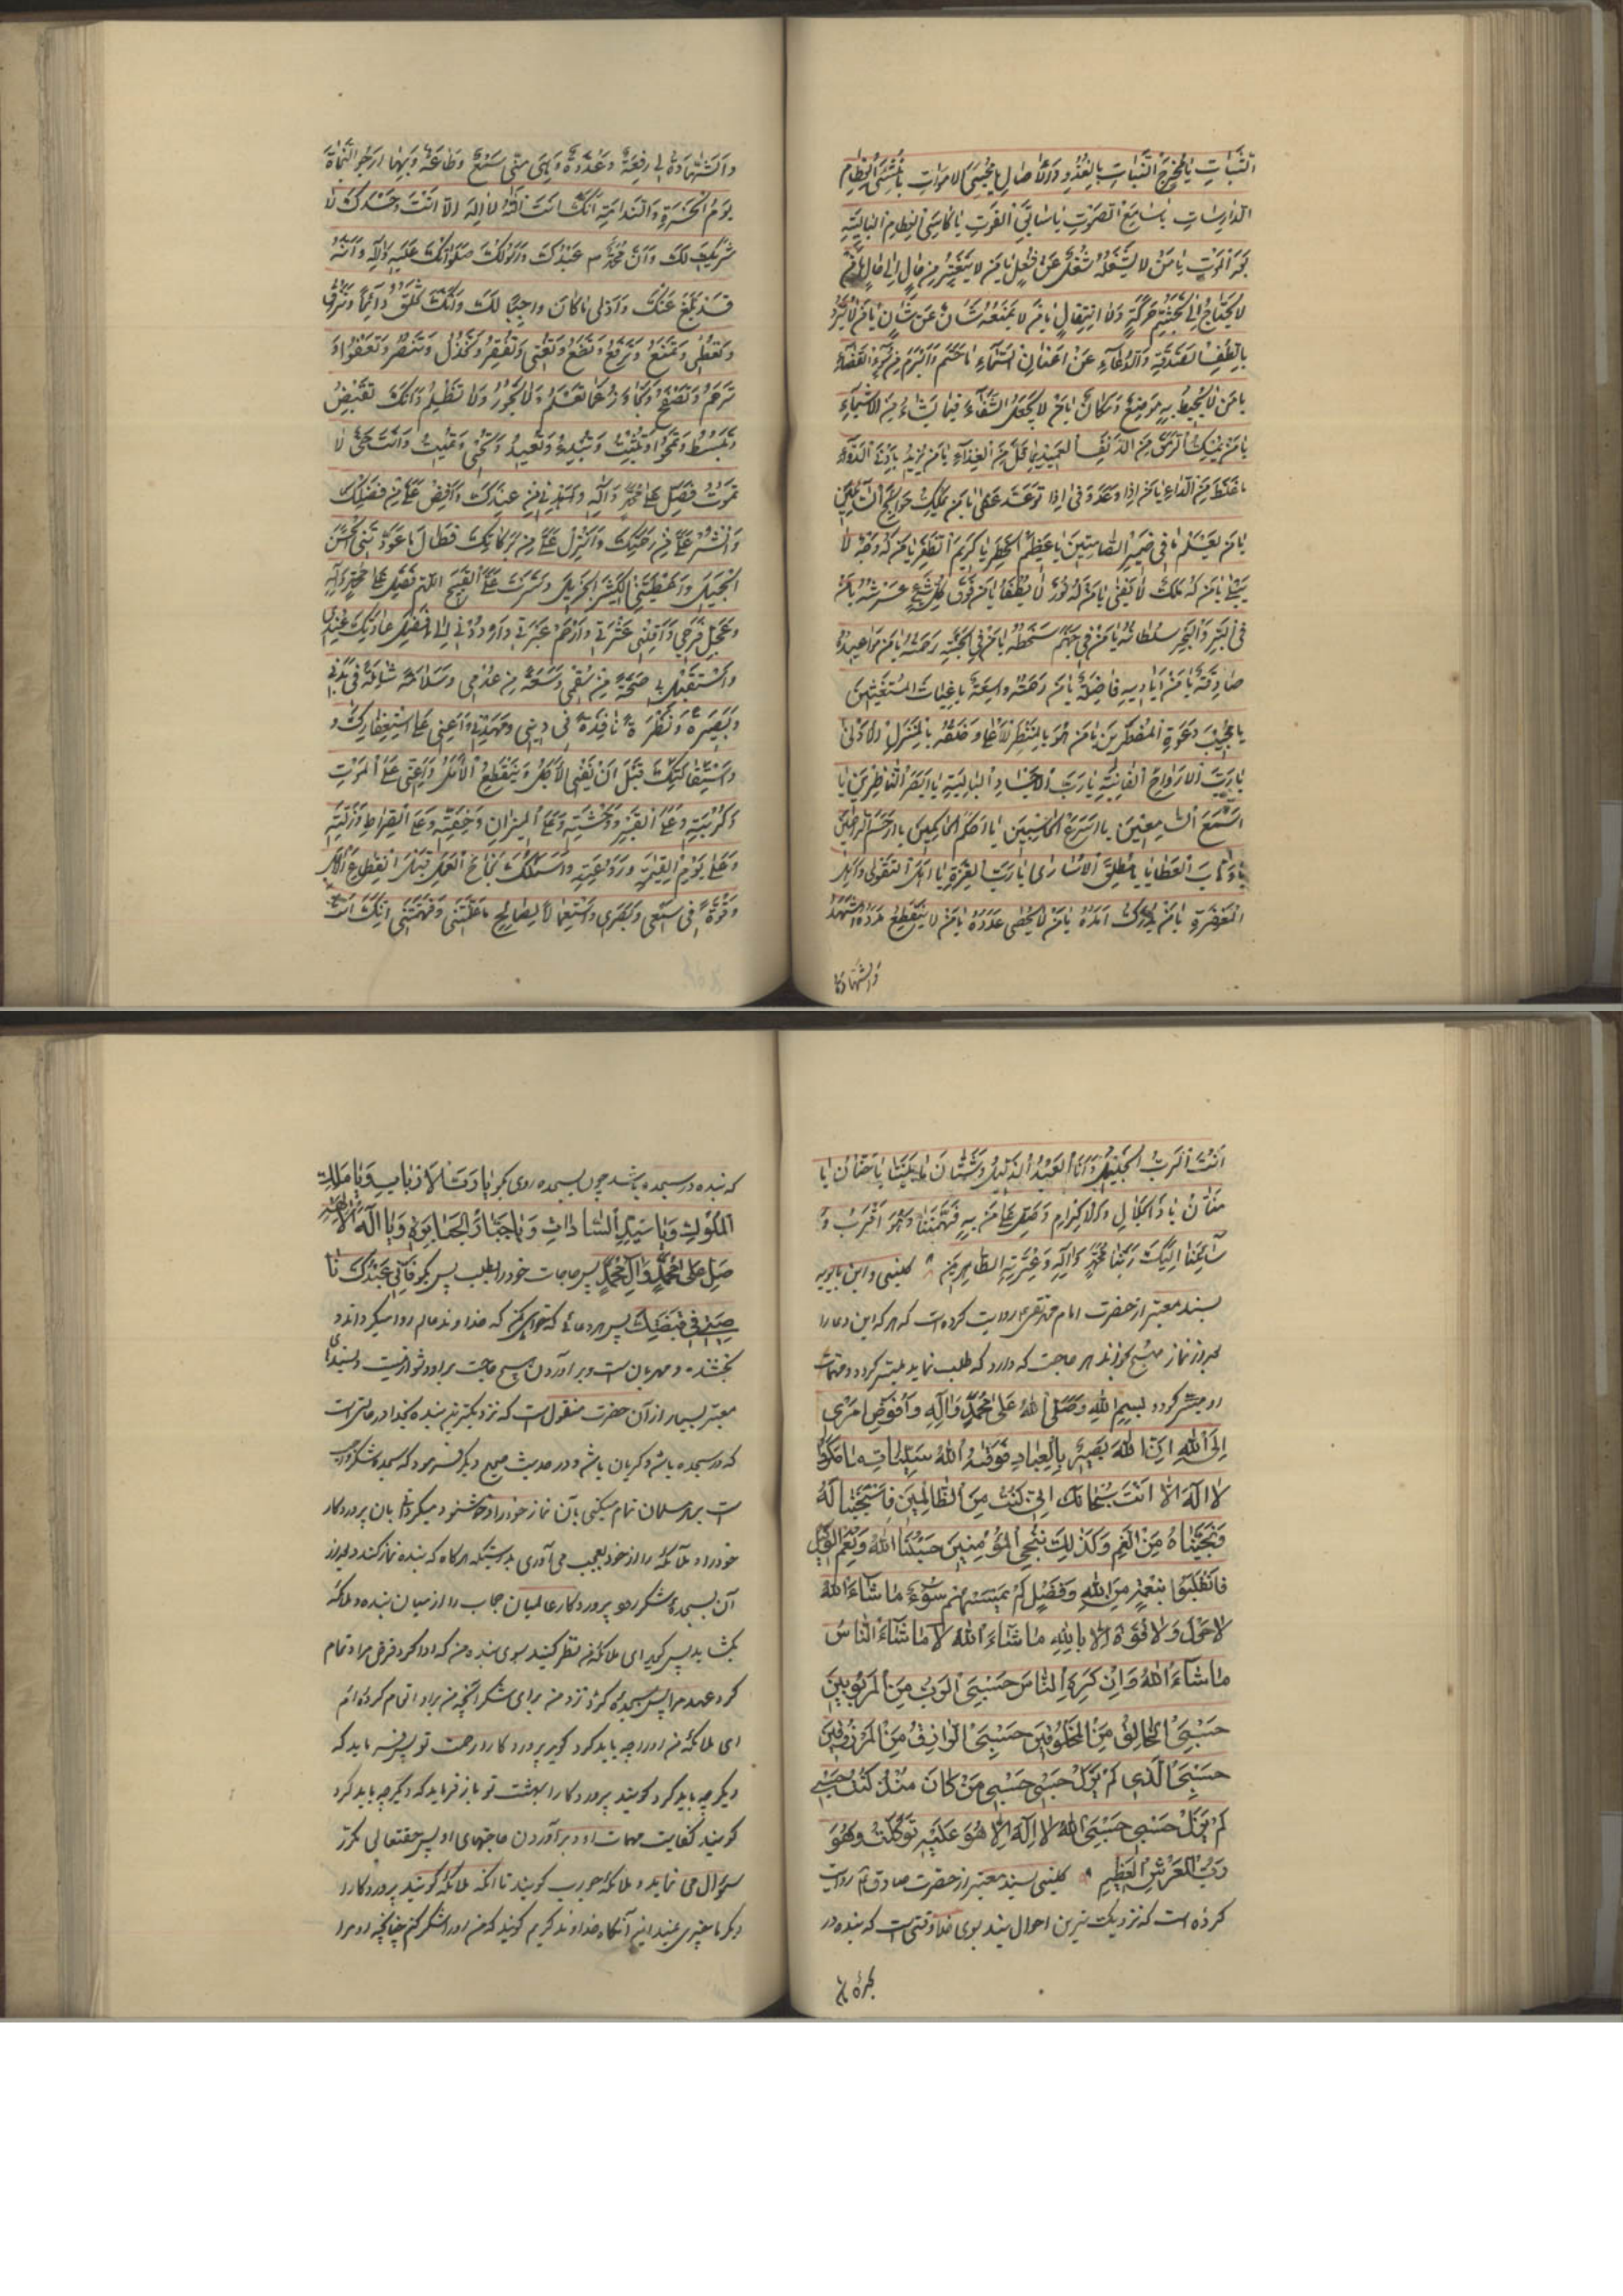 النَّبَاتِ يَا مُخْرِجَ النَّبَاتِ بِالْغُدُوِّ وَالْآصَالِ يَا مُحْيِيَ الْأَمْوَاتِ يَا مُنْشِئَ الْعِظَامِ
الدَّارِسَاتِ يَا سَامِعَ الصَّوْتِ يَا سَابِقَ الْفَوْتِ يَا كَاسِيَ الْعِظَامِ الْبَالِيَةِ
بَعْدَ الْمَوْتِ يَا مَنْ لَا يَشْغَلُهُ شُغْلٌ عَنْ شُغْلٍ يَا مَنْ لَا يَتَغَيَّرُ مِنْ حَالٍ إِلَى حَالٍ يَا مَنْ
لَا يَحْتَاجُ إِلَى تَجَشُّمِ حَرَكَةٍ وَلَا انْتِقَالٍ يَا مَنْ لَا يَمْنَعُهُ شَأْنٌ عَنْ شَأْنٍ يَا مَنْ يَرُدُّ
بِالْطَفِ الصَّدَقَةِ وَالدُّعَاءِ عَنْ أَعْنَانِ السَّمَاءِ مَا حَتَمَ وَأَبْرَمَ مِنْ سُوءِ الْقَضَاءِ
يَا مَنْ لَا يُحِيطُ بِهِ مَوْضِعٌ وَمَكَانٌ يَا مَنْ يَجْعَلُ الشِّفَاءَ فِيمَا يَشَاءُ مِنَ الْأَشْيَاءِ
يَا مَنْ يُمْسِكُ الرَّمَقَ مِنَ الدَّنِفِ الْعَمِيدِ بِمَا قَلَّ مِنَ الْغِذَاءِ يَا مَنْ يُزِيلُ بِأَدْنَى الدَّوَاءِ
مَا غَلُظَ مِنَ الدَّاءِ يَا مَنْ إِذَا وَعَدَ وَفَى وَإِذَا تَوَعَّدَ عَفَا يَا مَنْ يَمْلِكُ حَوَائِجَ السَّائِلِينَ
يَا مَنْ يَعْلَمُ مَا فِي ضَمِيرِ الصَّامِتِينَ يَا عَظِيمَ الْخَطَرِ يَا كَرِيمَ الظَّفَرِ يَا مَنْ لَهُ وَجْهٌ لَا
يَبْلَى يَا مَنْ لَهُ مُلْكٌ لَا يَفْنَى يَا مَنْ لَهُ نُورٌ لَا يُطْفَأُ يَا مَنْ فَوْقَ كُلِّ شَيْءٍ عَرْشُهُ يَا مَنْ
فِي الْبَرِّ وَالْبَحْرِ سُلْطَانُهُ يَا مَنْ فِي جَهَنَّمَ سَخَطُهُ يَا مَنْ فِي الْجَنَّةِ رَحْمَتُهُ يَا مَنْ مَوَاعِيدُهُ
صَادِقَةٌ يَا مَنْ أَيَادِيهِ فَاضِلَةٌ يَا مَنْ رَحْمَتُهُ وَاسِعَةٌ يَا غِيَاثَ الْمُسْتَغِيثِينَ
يَا مُجِيبَ دَعْوَةِ الْمُضْطَرِّينَ يَا مَنْ هُوَ بِالْمَنْظَرِ الْأَعْلَى وَخَلْقُهُ بِالْمَنْزِلِ الْأَدْنَى
يَا رَبَّ الْأَرْوَاحِ الْفَانِيَةِ يَا رَبَّ الْأَجْسَادِ الْبَالِيَةِ يَا أَبْصَرَ النَّاظِرِينَ يَا
أَسْمَعَ السَّامِعِينَ يَا أَسْرَعَ الْحَاسِبِينَ يَا أَحْكَمَ الْحَاكِمِينَ يَا أَرْحَمَ الرَّاحِمِينَ
يَا وَاهِبَ الْعَطَايَا يَا مُطْلِقَ الْأُسَارَى يَا رَبَّ الْعِزَّةِ يَا أَهْلَ التَّقْوَى وَأَهْلَ
الْمَغْفِرَةِ يَا مَنْ لَا يُدْرَكُ أَمَدُهُ يَا مَنْ لَا يُحْصَى عَدَدُهُ يَا مَنْ لَا يَنْقَطِعُ مَدَدُهُ أَشْهَدُ
وَالشَّهَادَةُ
وَالشَّهَادَةُ لِي رِفْعَةٌ وَعُدَّةٌ وَهِيَ مِنِّي سَمْعٌ وَطَاعَةٌ وَبِهَا أَرْجُو النَّجَاةَ
يَوْمَ الْحَسْرَةِ وَالنَّدَامَةِ أَنَّكَ أَنْتَ اللهُ لَا إِلَهَ إِلَّا أَنْتَ وَحْدَكَ لَا
شَرِيكَ لَكَ وَأَنَّ مُحَمَّدًا عَبْدُكَ وَرَسُولُكَ صَلَوَاتُكَ عَلَيْهِ وَآلِهِ وَأَنَّهُ
قَدْ بَلَّغَ عَنْكَ وَأَدَّى مَا كَانَ وَاجِبًا لَكَ وَأَنَّكَ تَخْلُقُ دَائِمًا وَتَرْزُقُ
وَتُعْطِي وَتَمْنَعُ وَتَرْفَعُ وَتَضَعُ وَتُغْنِي وَتُفْقِرُ وَتَخْذُلُ وَتَنْصُرُ وَتَعْفُو وَ
تَرْحَمُ وَتَصْفَحُ وَتَجَاوَزُ عَمَّا تَعْلَمُ وَلَا تَجُورُ وَلَا تَظْلِمُ وَأَنَّكَ تَقْبِضُ
وَتَبْسُطُ وَتَمْحُو وَتُثْبِتُ وَتُبْدِئُ وَتُعِيدُ وَتُحْيِي وَتُمِيتُ وَأَنْتَ حَيٌّ لَا
تَمُوتُ فَصَلِّ عَلَى مُحَمَّدٍ وَآلِهِ وَاهْدِنِي مِنْ عِنْدِكَ وَأَفِضْ عَلَيَّ مِنْ فَضْلِكَ
وَانْشُرْ عَلَيَّ مِنْ رَحْمَتِكَ وَأَنْزِلْ عَلَيَّ مِنْ بَرَكَاتِكَ فَطَالَ مَا عَوَّدْتَنِي الْحَسَنَ
الْجَمِيلَ وَأَعْطَيْتَنِي الْكَثِيرَ الْجَزِيلَ وَسَتَرْتَ عَلَيَّ الْقَبِيحَ اللهُمَّ فَصَلِّ عَلَى مُحَمَّدٍ وَآلِهِ
وَعَجِّلْ فَرَجِي وَأَقِلْنِي عَثْرَتِي وَارْحَمْ عَبْرَتِي وَارْدُدْنِي إِلَى أَفْضَلِ عَادَتِكَ عِنْدِي
وَاسْتَقْبِلْ بِي صِحَّةً مِنْ سُقْمِي وَسَعَةً مِنْ عُدْمِي وَسَلَامَةً شَامِلَةً فِي بَدَنِي
وَبَصِيرَةً وَنَظْرَةً نَافِذَةً فِي دِينِي وَمَهِّدْنِي وَأَعِنِّي عَلَى اسْتِغْفَارِكَ وَ
وَاسْتِقَالَتِكَ قَبْلَ أَنْ يَفْنَى الْأَجَلُ وَيَنْقَطِعَ الْأَمَلُ وَأَعِنِّي عَلَى الْمَوْتِ
وَكُرْبَتِهِ وَعَلَى الْقَبْرِ وَوَحْشَتِهِ وَعَلَى الْمِيزَانِ وَخِفَّتِهِ وَعَلَى الصِّرَاطِ وَزَلَّتِهِ
وَعَلَى يَوْمِ الْقِيَامَةِ وَرَوْعَتِهِ وَأَسْئَلُكَ نَجَاحَ الْعَمَلِ قَبْلَ انْقِطَاعِ الْأَجَلِ
وَقُوَّةً فِي سَمْعِي وَبَصَرِي وَاسْتِعْمَالًا لِصَالِحِ مَا عَلَّمْتَنِي وَفَهَّمْتَنِي إِنَّكَ أَنْتَ
أَنْتَ الرَّبُّ الْجَلِيلُ وَأَنَا الْعَبْدُ الذَّلِيلُ وَشَتَّانَ مَا بَيْنَنَا يَا حَنَّانُ يَا
مَنَّانُ يَا ذَا الْجَلَالِ وَالْإِكْرَامِ وَصَلِّ عَلَى مَنْ بِهِ فَهَّمْتَنَا وَهُوَ أَقْرَبُ وَ
إِلَيْكَ رَبَّنَا مُحَمَّدٍ وَآلِهِ وَعِتْرَتِهِ الطَّاهِرِينَ کلینی و ابن بابویه
بسند معتبر از حضرت امام محمد تقی روایت کرده است که هر که این دعا را
بعد از نماز صبح بخواند هر حاجت که دارد که طلب نماید میسر گردد و مهمات
او میسر گردد بِسْمِ اللهِ وَصَلَّى اللهُ عَلَى مُحَمَّدٍ وَآلِهِ وَأُفَوِّضُ أَمْرِي
إِلَى اللهِ إِنَّ اللهَ بَصِيرٌ بِالْعِبَادِ فَوَقَاهُ اللهُ سَيِّئَاتِ مَا مَكَرُوا
لَا إِلَهَ إِلَّا أَنْتَ سُبْحَانَكَ إِنِّي كُنْتُ مِنَ الظَّالِمِينَ فَاسْتَجَبْنَا لَهُ
وَنَجَّيْنَاهُ مِنَ الْغَمِّ وَكَذَلِكَ نُنْجِي الْمُؤْمِنِينَ حَسْبُنَا اللهُ وَنِعْمَ الْوَكِيلُ
فَانْقَلَبُوا بِنِعْمَةٍ مِنَ اللهِ وَفَضْلٍ لَمْ يَمْسَسْهُمْ سُوءٌ مَا شَاءَ اللهُ
لَا حَوْلَ وَلَا قُوَّةَ إِلَّا بِاللهِ مَا شَاءَ اللهُ لَا مَا شَاءَ النَّاسُ
مَا شَاءَ اللهُ وَإِنْ كَرِهَ النَّاسُ حَسْبِيَ الرَّبُّ مِنَ الْمَرْبُوبِينَ
حَسْبِيَ الْخَالِقُ مِنَ الْمَخْلُوقِينَ حَسْبِيَ الرَّازِقُ مِنَ الْمَرْزُوقِينَ
حَسْبِيَ الَّذِي لَمْ يَزَلْ حَسْبِي حَسْبِي مَنْ كَانَ مُنْذُ كُنْتُ حَسْبِي
لَمْ يَزَلْ حَسْبِي حَسْبِيَ اللهُ لَا إِلَهَ إِلَّا هُوَ عَلَيْهِ تَوَكَّلْتُ وَهُوَ
رَبُّ الْعَرْشِ الْعَظِيمِ کلینی بسند معتبر از حضرت صادق روایت
کرده است که نزدیک ترین احوال بنده بسوی خدا وقتی است که بنده در
که بنده در سجده باشد چون بسجده روی بگو يَا رَبَّ الْأَرْبَابِ وَيَا مَلِكَ
الْمُلُوكِ وَيَا سَيِّدَ السَّادَاتِ وَيَا جَبَّارَ الْجَبَابِرَةِ وَيَا إِلَهَ الْآلِهَةِ
صَلِّ عَلَى مُحَمَّدٍ وَآلِ مُحَمَّدٍ پس حاجات خود را بطلب پس بگو فَإِنِّي عَبْدُكَ نَا
صِيَتِي فِي قَبْضَتِكَ پس هر دعائی که خواهی بکن که خداوند عالم روا میگرداند و
بخشنده و مهربان است و برآوردن هیچ حاجت بر او دشوار نیست و بسند
معتبر بسیار از آن حضرت منقول است که نزدیکترین بنده بخدا در حالتی است
که در سجده باشد و گریان باشد و در حدیث صحیح دیگر فرمود که سجده شکر واجب
است بر هر مسلمان تمام میکنی بآن نماز خود را و خوشنود میگردانی بآن پروردگار
خود را و ملائکه را از خود بعجب می آوری بدرستیکه هرگاه که بنده نماز کند و بعد از
آن بسجده شکر رود پروردگار عالمیان حجاب را از میان بنده و ملائکه
بگشاید پس گوید ای ملائکه من نظر کنید بسوی بنده من که ادا کرد فرض مرا و تمام
کرد عهد مرا پس سجده کرد نزد من برای شکر آنچه من بر او انعام کرده ام
ای ملائکه من او را چه باید کرد گویند پروردگارا رحمت تو پس فرماید که
دیگر چه باید کرد گویند پروردگارا بهشت تو باز فرماید که دیگر چه باید کرد
گویند کفایت مهمات او و برآوردن حاجتهای او پس حقتعالی مکرر
سؤال می نماید و ملائکه جواب گویند تا آنکه ملائکه گویند پروردگارا
دیگر ما چیزی نمیدانیم آنگاه خداوند کریم گوید که من او را شکر کنم چنانچه او مرا